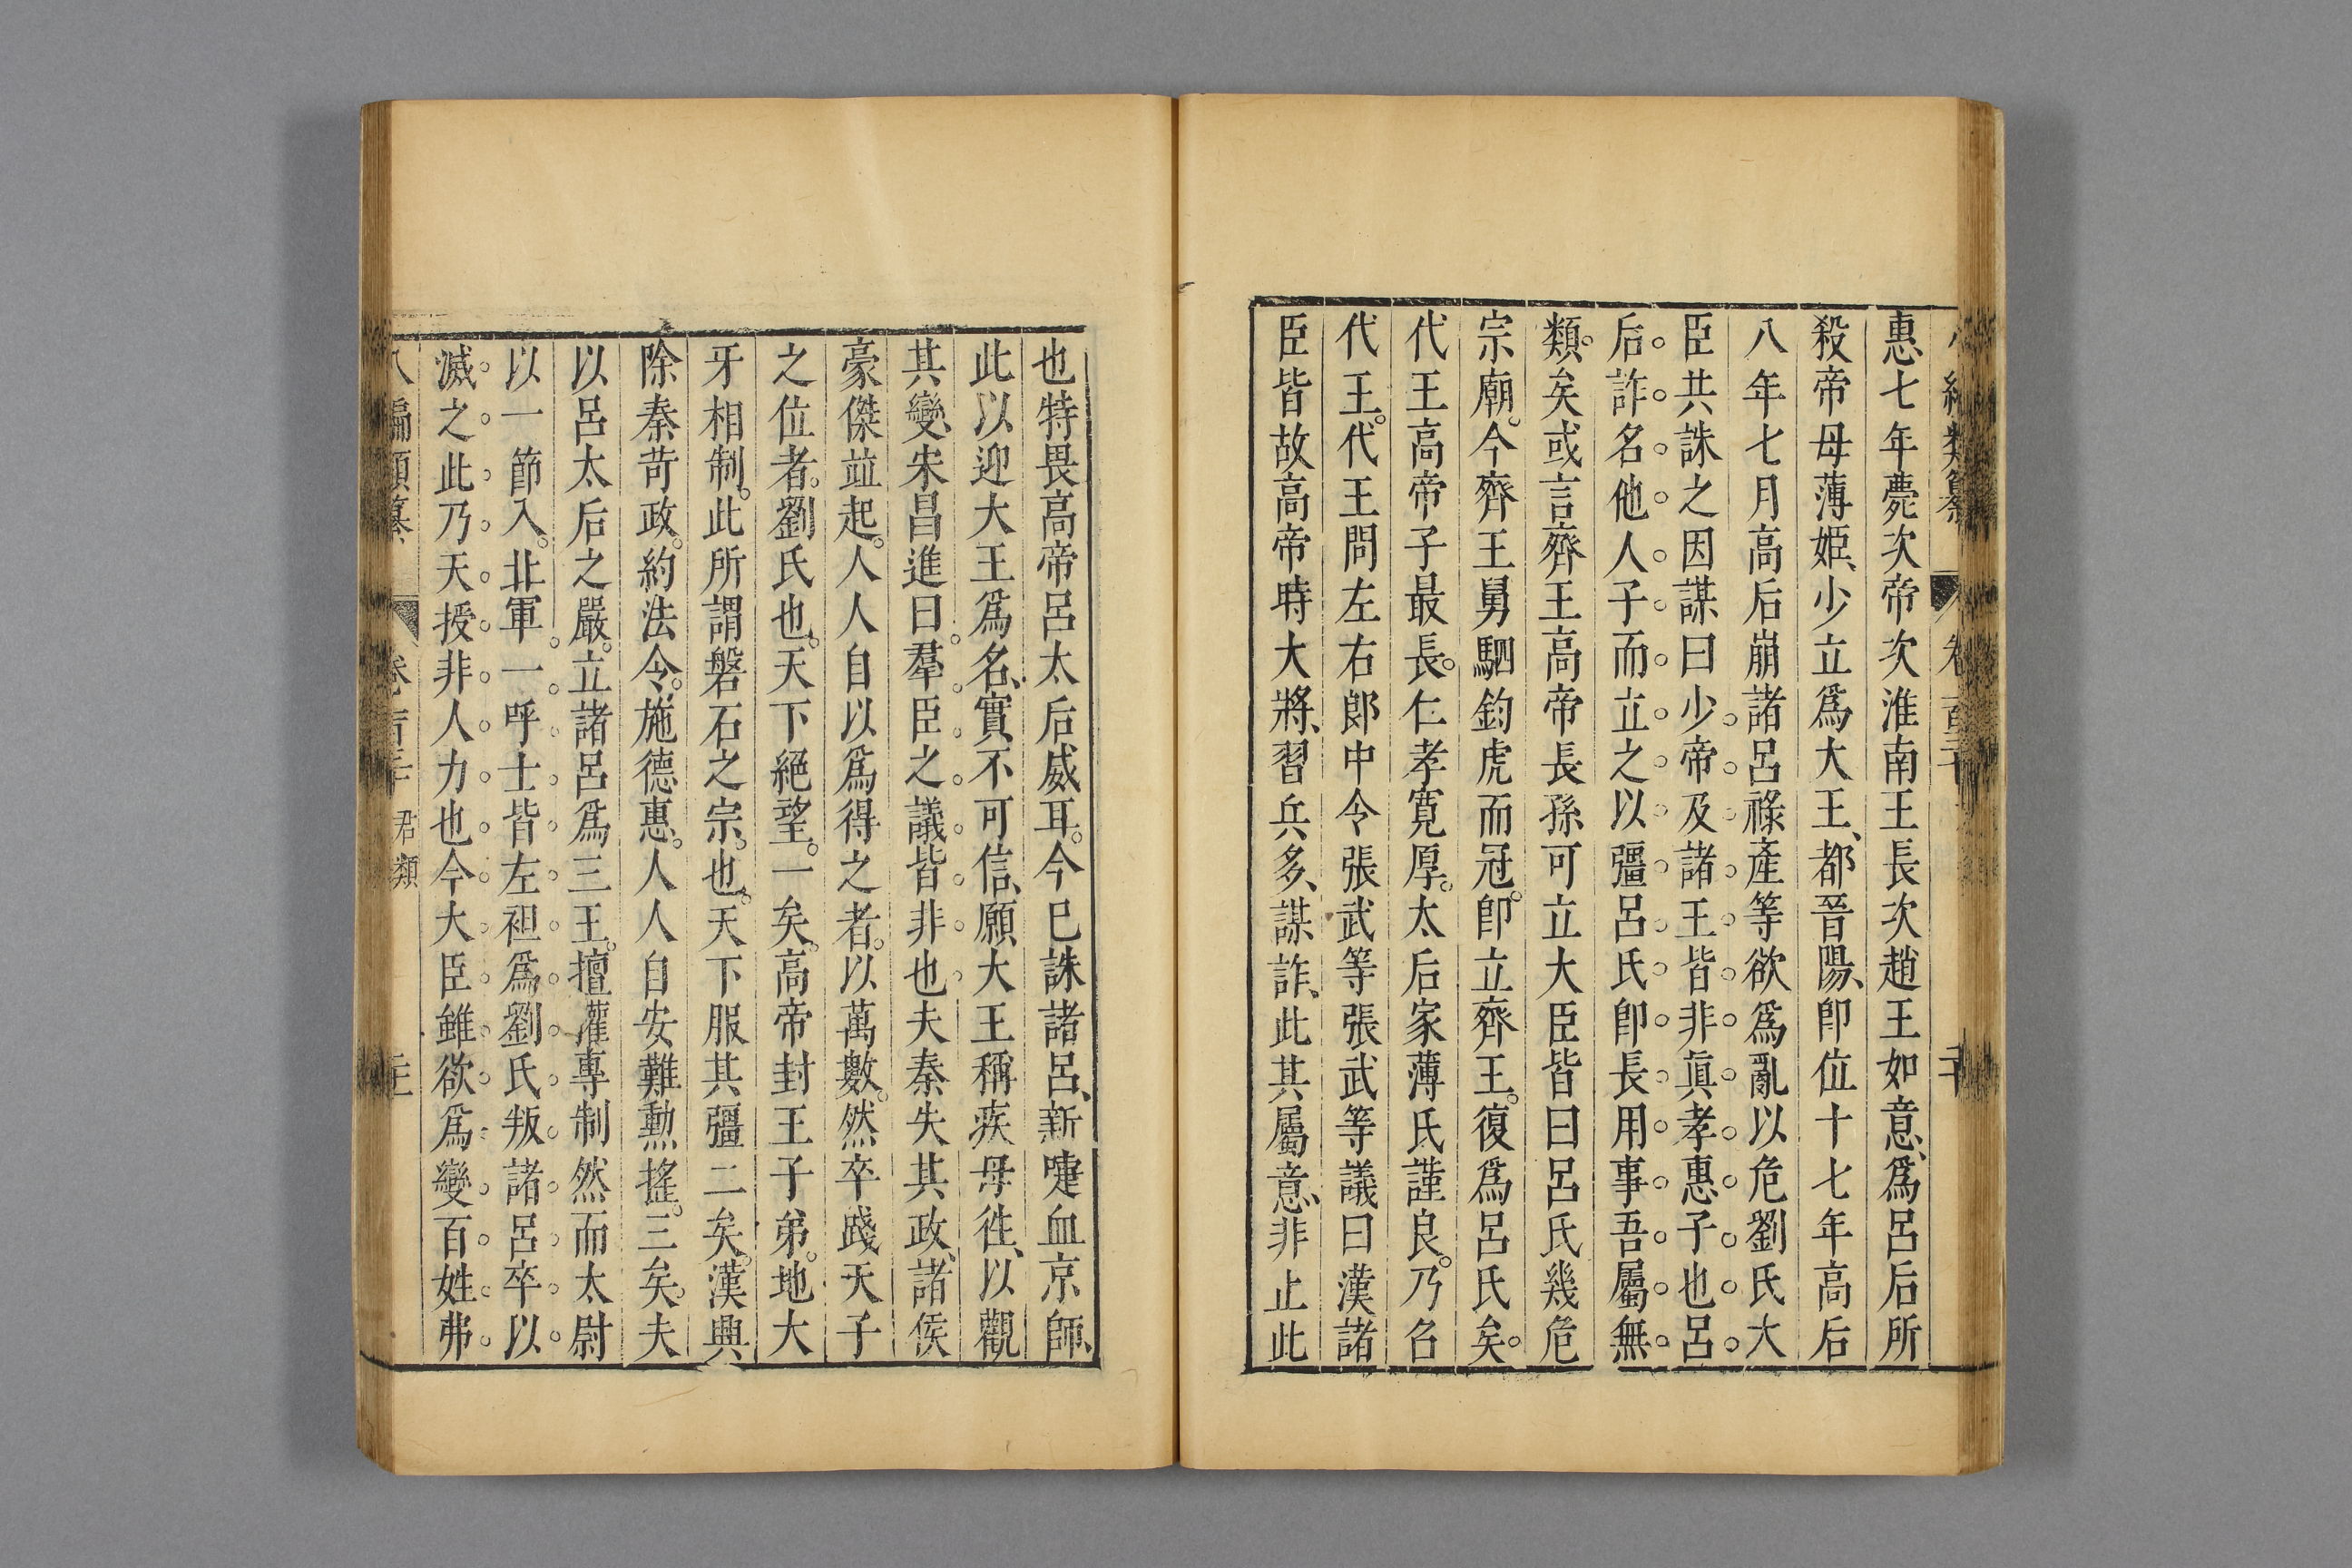 惠、七年薨次帝次淮南王長次趙王如意、爲呂后所
殺帝母薄姬、少立爲大王、都晉陽、卽位十七年高后
八年七月高后崩諸呂祿產等欲爲亂以危劉氏大
臣共誅之因謀曰少帝及諸王皆非眞孝惠子也呂
后詐名他人子而立之以彊呂氏卽長用事吾屬無
類。矣或言齊王高帝長孫可立大臣皆曰呂氏幾危
宗廟。今齊王舅駟鈞虎而冠。卽立齊王。復爲呂氏矣。
代王高帝子最長。仁孝寛厚。太后家薄氏謹良。乃召
代王。代王問左右郎中令張武等張武等議曰漢諸
臣皆故高帝時大將、習兵多、謀詐、此其屬意、非止此
也特畏高帝呂太后威耳。今巳誅諸呂、新啑血京師、
此以迎大王爲名、實不可信、願大王稱疾毋徃、以觀
其變、宋昌進曰羣臣之議皆非也夫秦失其政、諸侯
豪傑並起。人人自以爲得之者。以萬數。然卒踐天子
之位者。劉氏也。天下絕望。一矣。高帝封王子弟。地大
牙相制。此所謂磐石之宗。也。天下服其彊二矣。漢興
除秦苛政。約法令。施德惠。人人自安難動搖。三矣。夫
以呂太后之嚴。立諸呂爲三王。擅權專制然而太尉
以一節入。北軍一呼士皆左袒爲劉氏叛諸呂卒以
滅之此乃天授非人力也今大臣雖欲爲變百姓弗
八編類纂 卷一百二十 君類